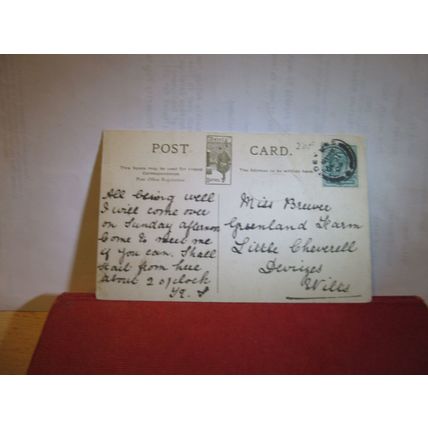 POST CARD.
This Space may be used for Inland
Correspondence.
Post Office Regulation
The Address to be written here
All being well
I will come over
on Sunday afternoon
Come to meet me
if you can. Shall
start from here
about 2 o'clock
Miss Brewer
Greenland Farm
Little Cheverell
Devizes
Wilts